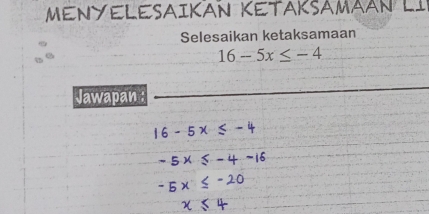 MENYELESAIKAN KETAKSAMAAN
Selesaikan ketaksamaan
16 - 5x ≤ -4
Jawapan :
16 - 5x ≤ -4
-5x ≤ -4 -16
-5x ≤ -20
x ≤ 4